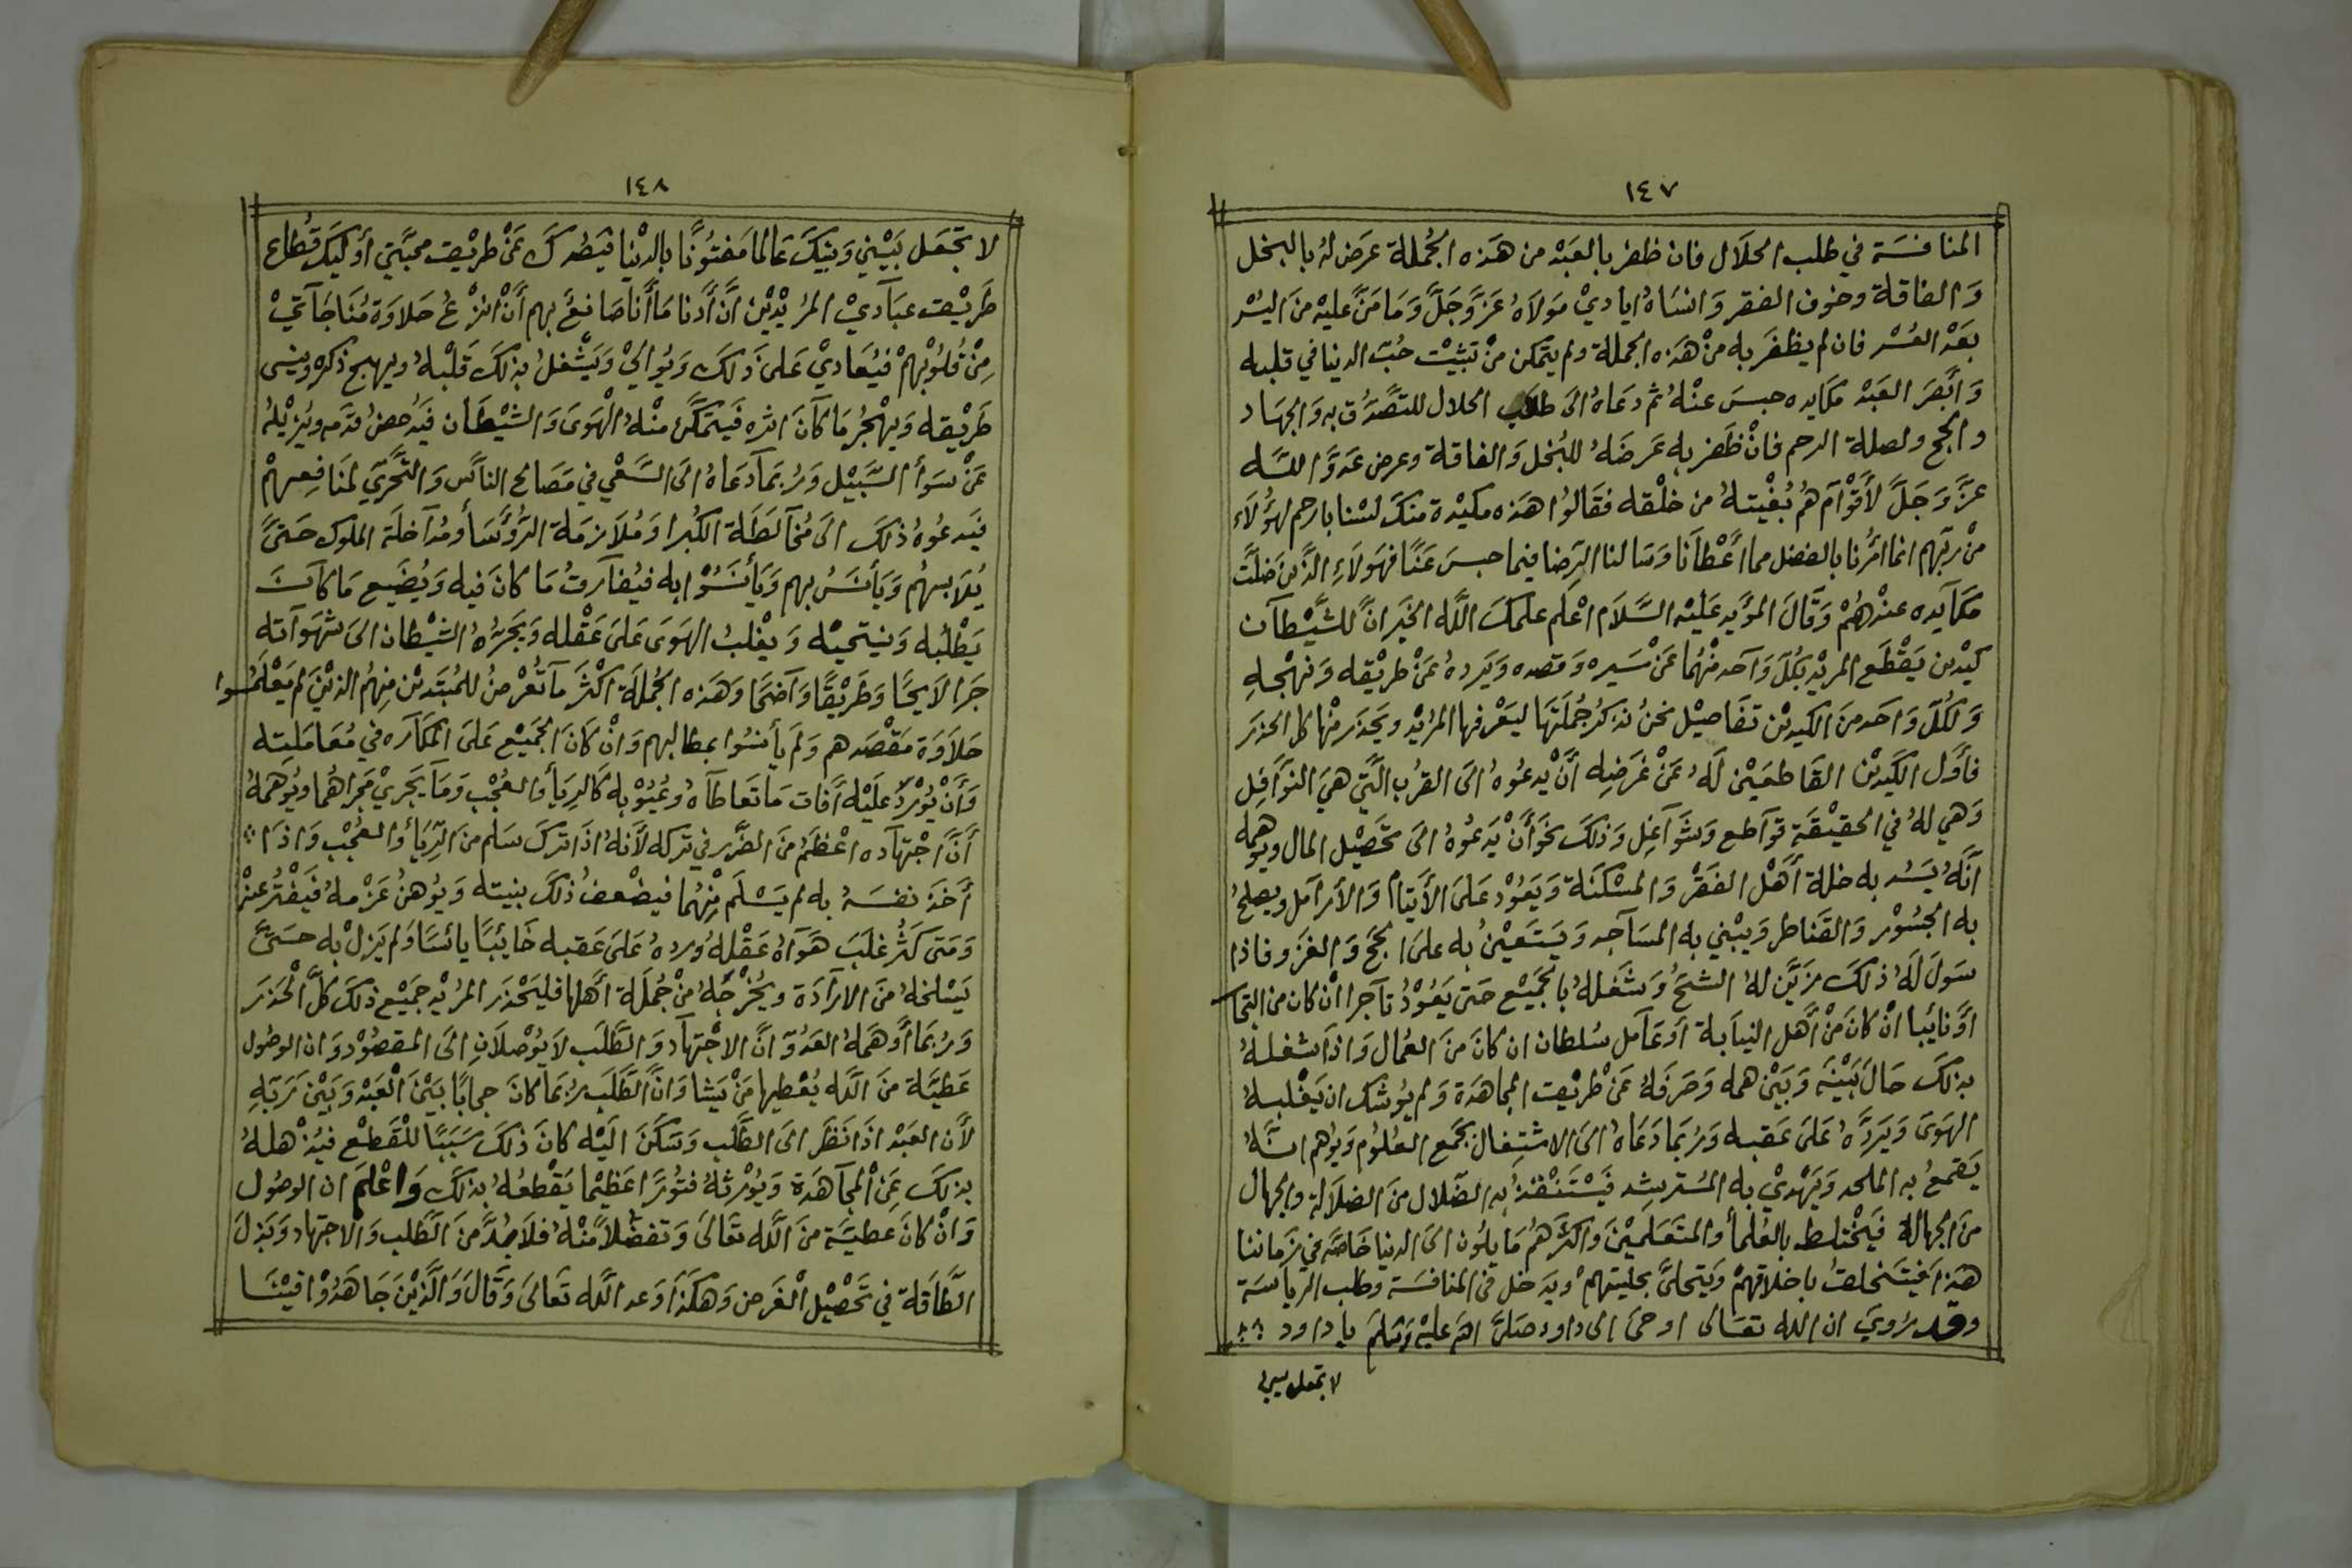 ١٤٧
المنافسَة في طلب الحلَال فان ظفر بالعَبْد من هَذه الجُملة عرَض لهُ بالبخل
وَالفاقة وخوف الفقر وَانسَاهُ ايَاديْ مَولَاهُ عَزَّ وَجَلَّ وَمَا مَنَّ عليْه منَ اليُسْر
بعَدْ العُسْر فان لم يظفَر به منْ هَذه الجملة ولم يتمكن منْ تثبيْت حُبّ الدنيا في قلبه
وَابْصَرَ العَبْد مكايده حبسَ عنْهُ ثم دعَاهُ الىَ طلب الحلال للتصَّدُق به وَالجهَاد
والحج ولصلة الرحم فانْ ظَفر به عَرضَهُ للبُخل وَالفاقة وعرض عَدوَّ اللّه
عزَّ وَجَلَّ لأَقوْام هُم بُغْيتهُ من خلْقه فقَالوُا هَذه مكيْدة منكَ لسْنا بارحم لهؤُلَاء
منْ ربّهم انما امَرُنا بالفضل مما اعْطَانا وَسَالنا الرّضا فيما حبسَ عَنَّا فهَولَاءِ الذَّينَ ضلَّتْ
مكَآيده عنْدهُمْ وَقَالَ المؤَيد عَليْه السَّلَام اعْلَم علمكَ اللَّه الخَير انَّ للشَّيْطَان
كيْدين يَقْطَع المريْد بكُلّ وَاحد منْهُما عَنْ سَيره وَقصده وَيَردهُ عَنْ طريْقه وَنهْجه
وَلكُلّ وَاحد منَ الكيدين تفَاصيْل نحنُ نذكُر جُملَتَها ليَعْرفها المرُيْد ويَحذَر منْها كل الحذَر
فأوَّل الكَيديْن القَاطعَيْن لَهُ عَنْ غَرَضِه أنْ يدعُوهُ الىَ القرُب الَّتي هيَ النوَافِل
وَهي لهُ في الحقيْقَة قوَاطع وَشوَاغِل وَذلكَ نحَو أَنْ يَدعُوهُ الىَ تحَصيْل المال ويوُهمه
انَّهُ يَسُد به خلة أَهْل الفقَرْ وَالمسْكنَة وَيَعُوْد عَلىَ الأَيتَام وَالأَرامَل ويصلحُ
به الجسُوْر وَالقَناطر وَيبْني به المسَاجد وَيَسْتَعيْنُ به علىَ الحَج وَالغَزو فاذا
سَولَ لَهُ ذلكَ زيَّن لهُ الشحَّ وَشغَلهُ بالجَميْع حَتىَ يَعُوْدُ تاجرا انْ كان من التجا
أوْ نايُبا انْ كانَ منْ أَهل النيَابة أوعَامل سُلطان ان كانَ منَ العُمال وَاذَا شغلهُ
بذلكَ حَالَ بَيْنَه وَبَيْن همه وَصَرفَهُ عَنْ طَريْقت المجاهَدَة وَلم يوُشك ان يَغْلبهُ
الهَوىَ وَيَردَّهُ عَلىَ عَقبه وَربُما دَعَاهُ الىَ الاشتِغال بجَمع العُلوُم وَيوُهم انَّهُ
يَقمعُ به الملحد وَيَهْديْ به المُسْترشد فَيسْتَنْقذُ به الضّلال منَ الضلَالة والجهال
منَ الجهالة فَيخْتلط بالعُلمأ والمتَعَلميْنَ واكثَرهُم مَايلُون الىَ الدنيا خَاصَّه في زَماننا
هذَا فيَتخلقُ باخلاقهمْ وَيَتحلىَّ بحليَتهمْ ويَدخل في المنافسَة وطلب الرياسَة
وقد رُويَ ان الله تعَالى اوحىَ الى داود صَلىَّ اللهَ عليْه وَسَلمَ يا داود
لا تجعل بيني
١٤٨
لا تجَعَل بَيْني وَبينكَ عَالما مَفتُونًا بالدنْيا فيَصُدكَ عَنْ طريْقت محبَّتي أولَيكَ قطُاع
طَريْقت عبَاديْ المرُيْديْن انَّ أدنا مَا أنا صَانعُ بهم أَنْ انزْعُ حَلاوَة مُنَاجَاتيْ
مِنْ قُلوُبْهمْ فيُعَاديْ عَلىَ ذلكَ وَيوُاليْ وَيَشْغلُ بذلكَ قَلْبهُ ويهج ذكره وينسى
طَريْقه وَيهْجُر مَا كَانَ اثره فَيتمكَّن منْهُ الْهَوىَ وَالشيْطَان فيَدُحضُ قدَمه ويُزيْلهُ
عَنْ سَوأَ السَّبيْل وَربُمَا دَعَاهُ الىَ السَّعْي في مَصَالح الناسّ وَالتَّحَّري لمنَا فِعهمْ
فيَدعُوهُ ذلكَ الىَ مُخاَلطَة الكُبرا وَمُلاَزمَة الرُّؤَسَأ ومُدآخلَة الملوك حَتىَّ
يُلاَبسهُم وَيَأنَسُ بهم وَيَأنَسُوْا به فيُفاَرقُ مَا كانَ فيه وَيُضَيع مَا كاَنَ
يَطْلبُه وَينتحيْه وَيغْلبُ الهَوىَ عَلىَ عَقْله وَيَجرهُ الشيْطان الىَ شهَوَاته
جَرا لَايحًا وَطَريْقًا وَاضحًا وَهَذه الجُملَة اكْثَر مآ تَعْرضُ للمُبتَديْن مِنهُم الذيْنَ لم يَعْلمَوا
حَلَاوَة مَقْصَدهم وَلم يأنسُوا بمطالبهم وَانْ كَانَ الجَميْع عَلىَ المكَاَره في مُعَاملَته
وَأَنْ يوُرْدَ عَليْه اَفات مَا تعَاطَآهُ وعُيوُبْه كَالريَأ وَالعجُب وَمَا يَجريْ مَجراهُما وَيوُهمهُ
أَنَّ اجْتهَآده اعْظَمُ منَ الضَّرر في تركه لأَنهُ اذَا تركَ سَلم منَ الرّيَأ والعُجْب وَاذَا
أَخذَ نفسَهُ به لم يَسْلَم مِنْهُما فيضْعفُ ذلكَ بنيته وَيوُهنُ عَزْمهُ فَيفْترُ عنْه
وَمَتىَ كَثُر غلَبَ هَوَاهُ عَقْلهُ وردهُ عَلىَ عَقبه خَايبًا يائسًا وَلم يَزلْ به حَتىَّ
يَسْلخهُ منَ الارَادَة وَيُخْرجَهُ منْ جُملَة أَهلهَا فليَحْذَر المرُيْد جَميْع ذلكَ كلَّ الْحَذرَ
وَربُما أَوهَمهُ العَدُوّ انَّ الاجْتهَاد وَالطَّلَب لاَيوُصْلَانِ الىَ المقصُوْد وَان الوصُول
عَطيَّة منَ اللَّه يُعْطيها مَنْ يَشا وَانَّ الطَّلَب ربُمَا كانَ حجابًا بَيْنَ الْعَبْد وَبَيْنَ رَبّهِ
لأَن العَبْد اذَا نَظَر الىَ الطَّلب وَسَكنَ اليْه كانَ ذلكَ سَبَبًا للقَطعْ فيُذْهلهُ
بذلكَ عَنِ الْمجَاهَدة وَيوُرْثهُ فتوُرًا عَظيْما يَقْطعُهُ بذلكَ وَاعْلَم ان الوصُول
وَانْ كانَ عطيَّة منَ اللَّه تعَالىَ وَتفَضّلاً منْهُ فلَا بُدَّ منَ الطَّلب وَالاجتهاد وَبَذلَ
الطَّاقَة في تَحْصيْل الْغَرَض وَهكَذَا وَعد اللَّه تعَالىَ وَقَالَ وَالَّذيْنَ جَاهَدُوْا فيْنَا